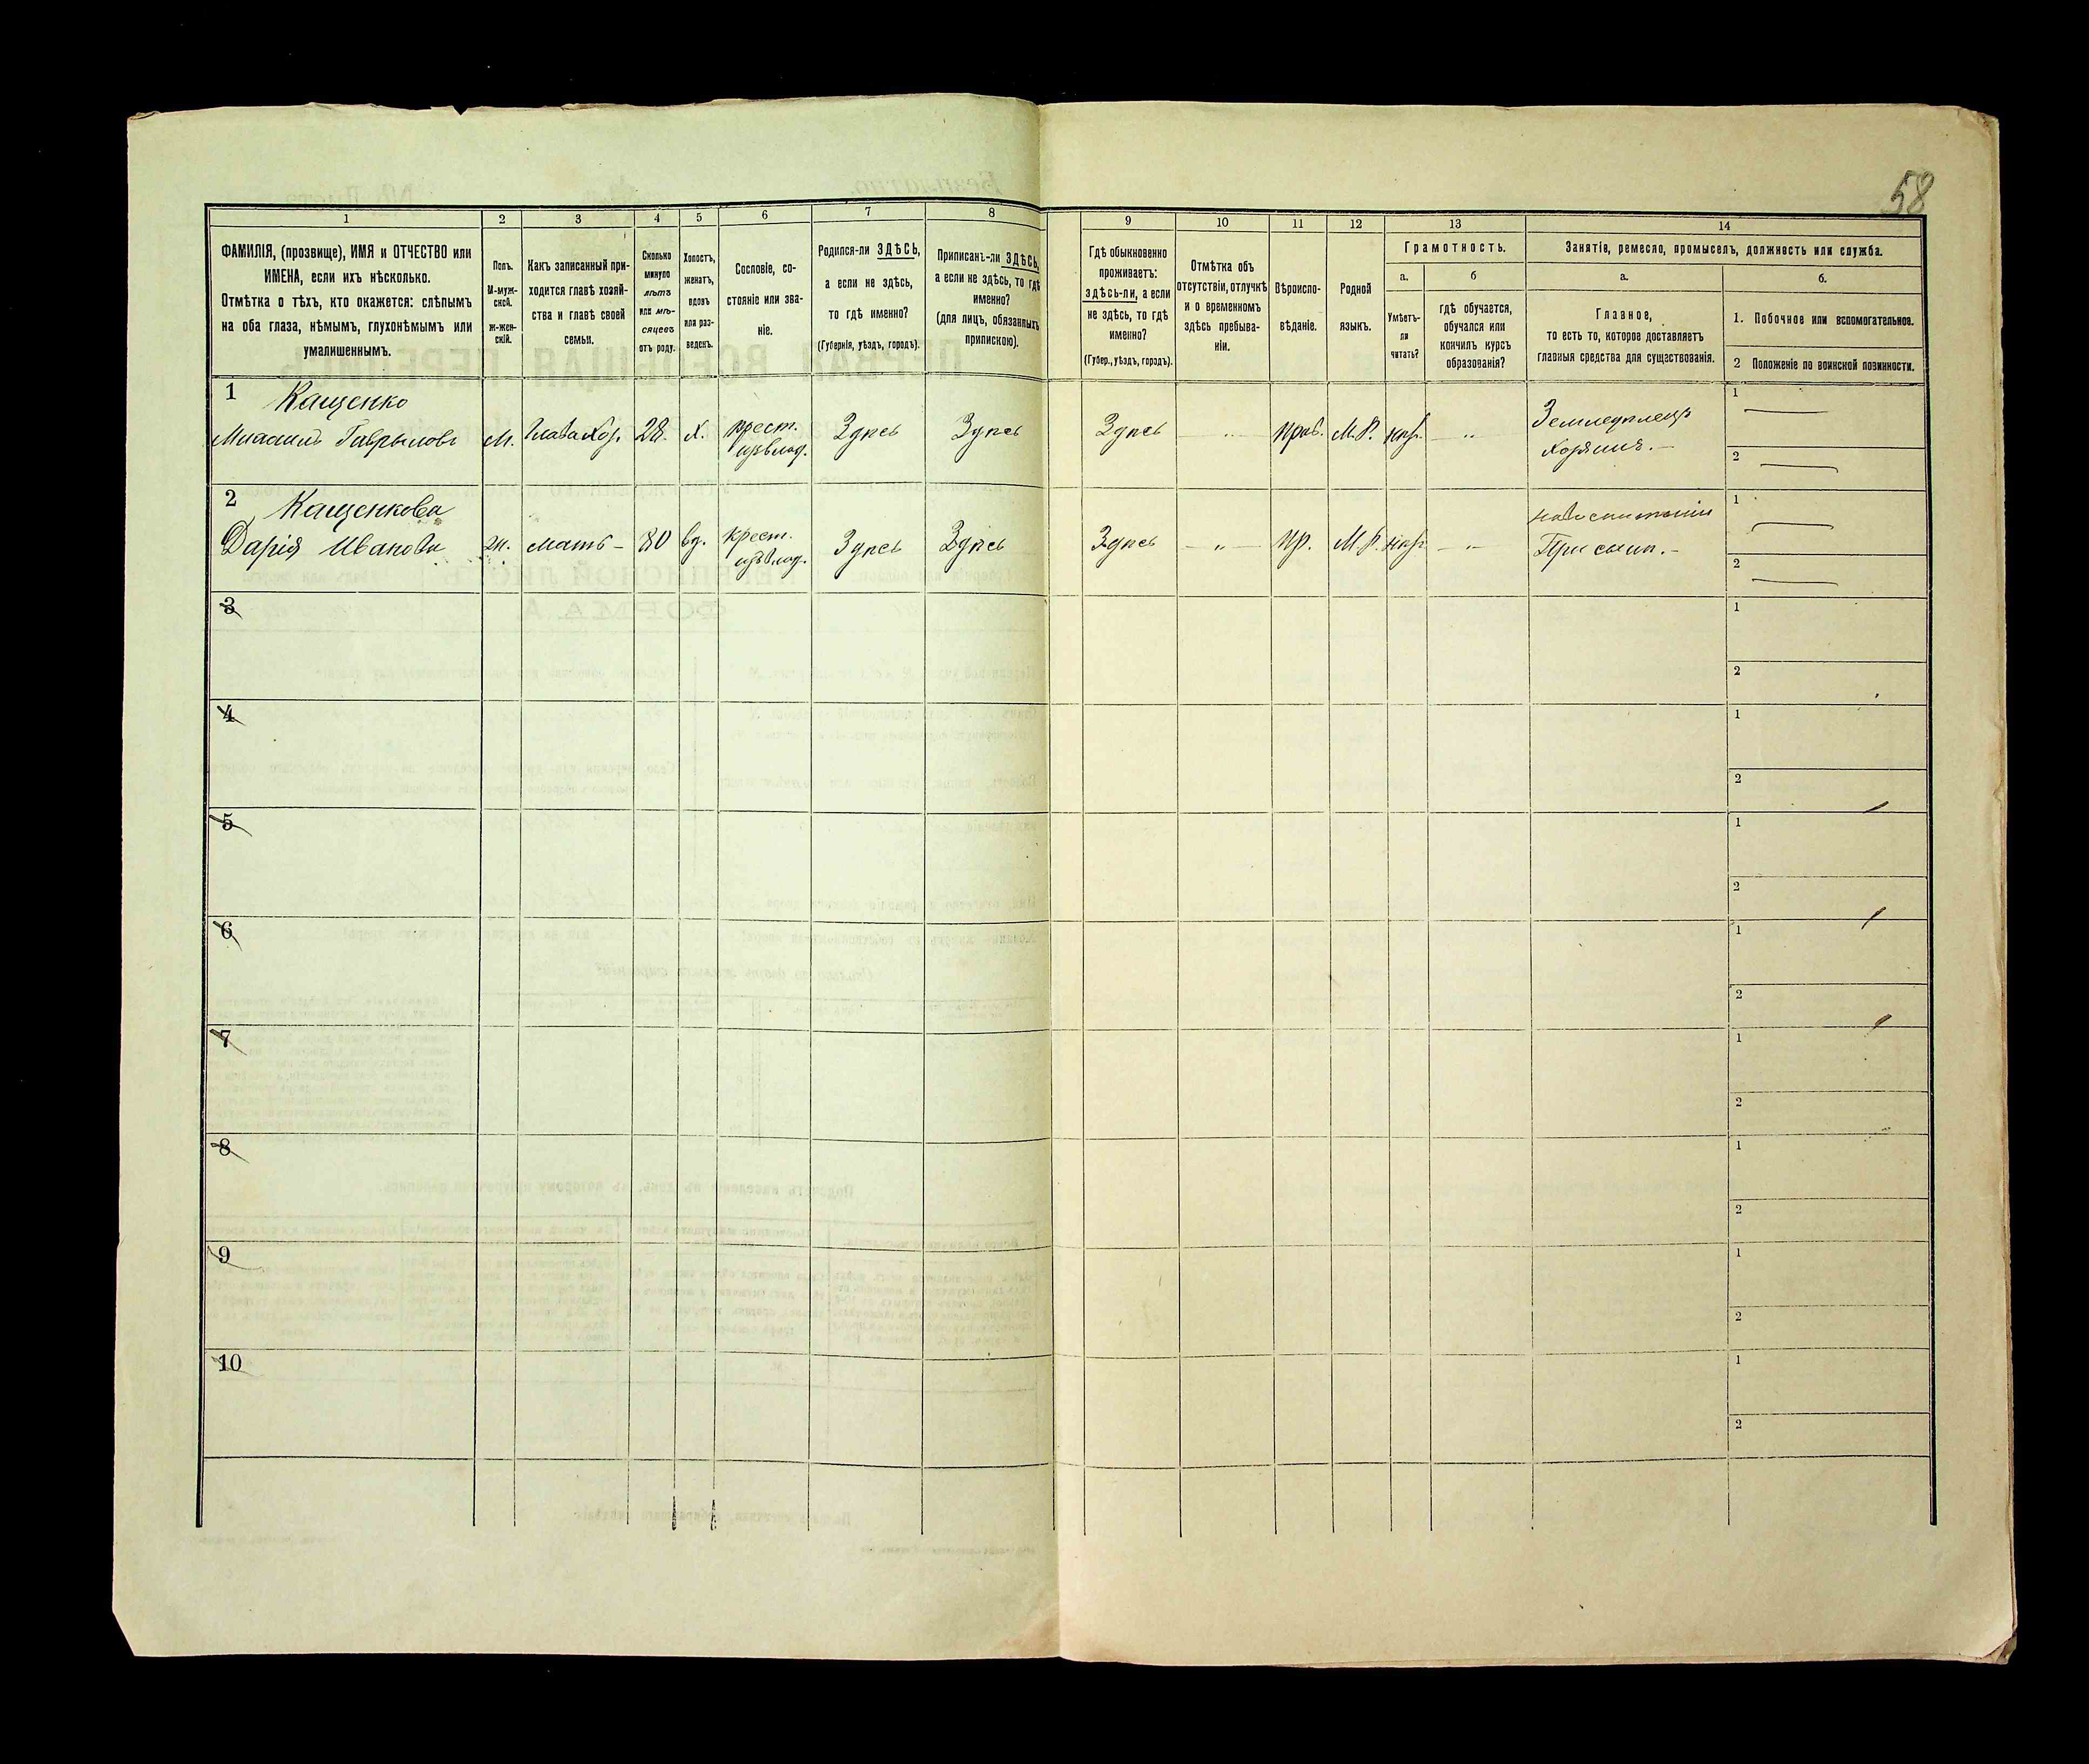 58
1
2
3
4
5
6
7
8
9
10
11
12
13
14
ФАМИЛІЯ, (прозвище), ИМЯ и ОТЧЕСТВО или
ИМЕНА, если ихъ нѣсколько.
Отмѣтка о тѣхъ, кто окажется: слѣпымъ
на оба глаза, нѣмымъ, глухонѣмымъ или
умалишеннымъ.
Полъ.
М-муж-
ской.
ж-жен-
скій.
Какъ записанный при-
ходится главѣ хозяй-
ства и главѣ своей
семьи.
Сколько
минуло
лѣтъ
или мѣ-
сяцевъ
отъ роду.
Холостъ,
женатъ,
вдовъ
или раз-
веденъ.
Сословіе, со-
стояніе или зва-
ніе.
Родился-ли ЗДѢСЬ,
а если не здѣсь,
то гдѣ именно?
(Губернія, уѣздъ, городъ).
Приписанъ-ли ЗДѢСЬ,
а если не здѣсь, то гдѣ
именно?
(для лицъ, обязанныхъ
припискою).
Гдѣ обыкновенно
проживаетъ:
здѣсь-ли, а если
не здѣсь, то гдѣ
именно?
(Губер., уѣздъ, городъ).
Отмѣтка объ
отсутствіи, отлучкѣ
и о временномъ
здѣсь пребыва-
ніи.
Вѣроиспо-
вѣданіе.
Родной
языкъ.
Грамотность.
а.
Умѣетъ-
ли
читать?
б
гдѣ обучается,
обучался или
кончилъ курсъ
образованія?
Занятія, ремесло, промыселъ, должность или служба.
а.
Главное,
то есть то, которое доставляетъ
главныя средства для существованія.
б.
1. Побочное или вспомогательное.
2 Положеніе по воинской повинности.
1
Кащенко
Гаврыловъ
м.
Глава хоз.
28.
х.
крест.
Здѣсь
Здѣсь
Здѣсь
— „ —
прав.
М.Р.
— „
Земледѣлецъ
Хозяинъ. —
1
2
2
Кащенкова
Дарія Иванова
ж.
мать —
80
вд.
крест.
Здѣсь
Здѣсь
Здѣсь
— „ —
пр.
М.Р.
— „ —
При сынѣ. —
1
2
3
1
2
4
1
2
5
1
2
6
1
2
7
1
2
8
1
2
9
1
2
10
1
2